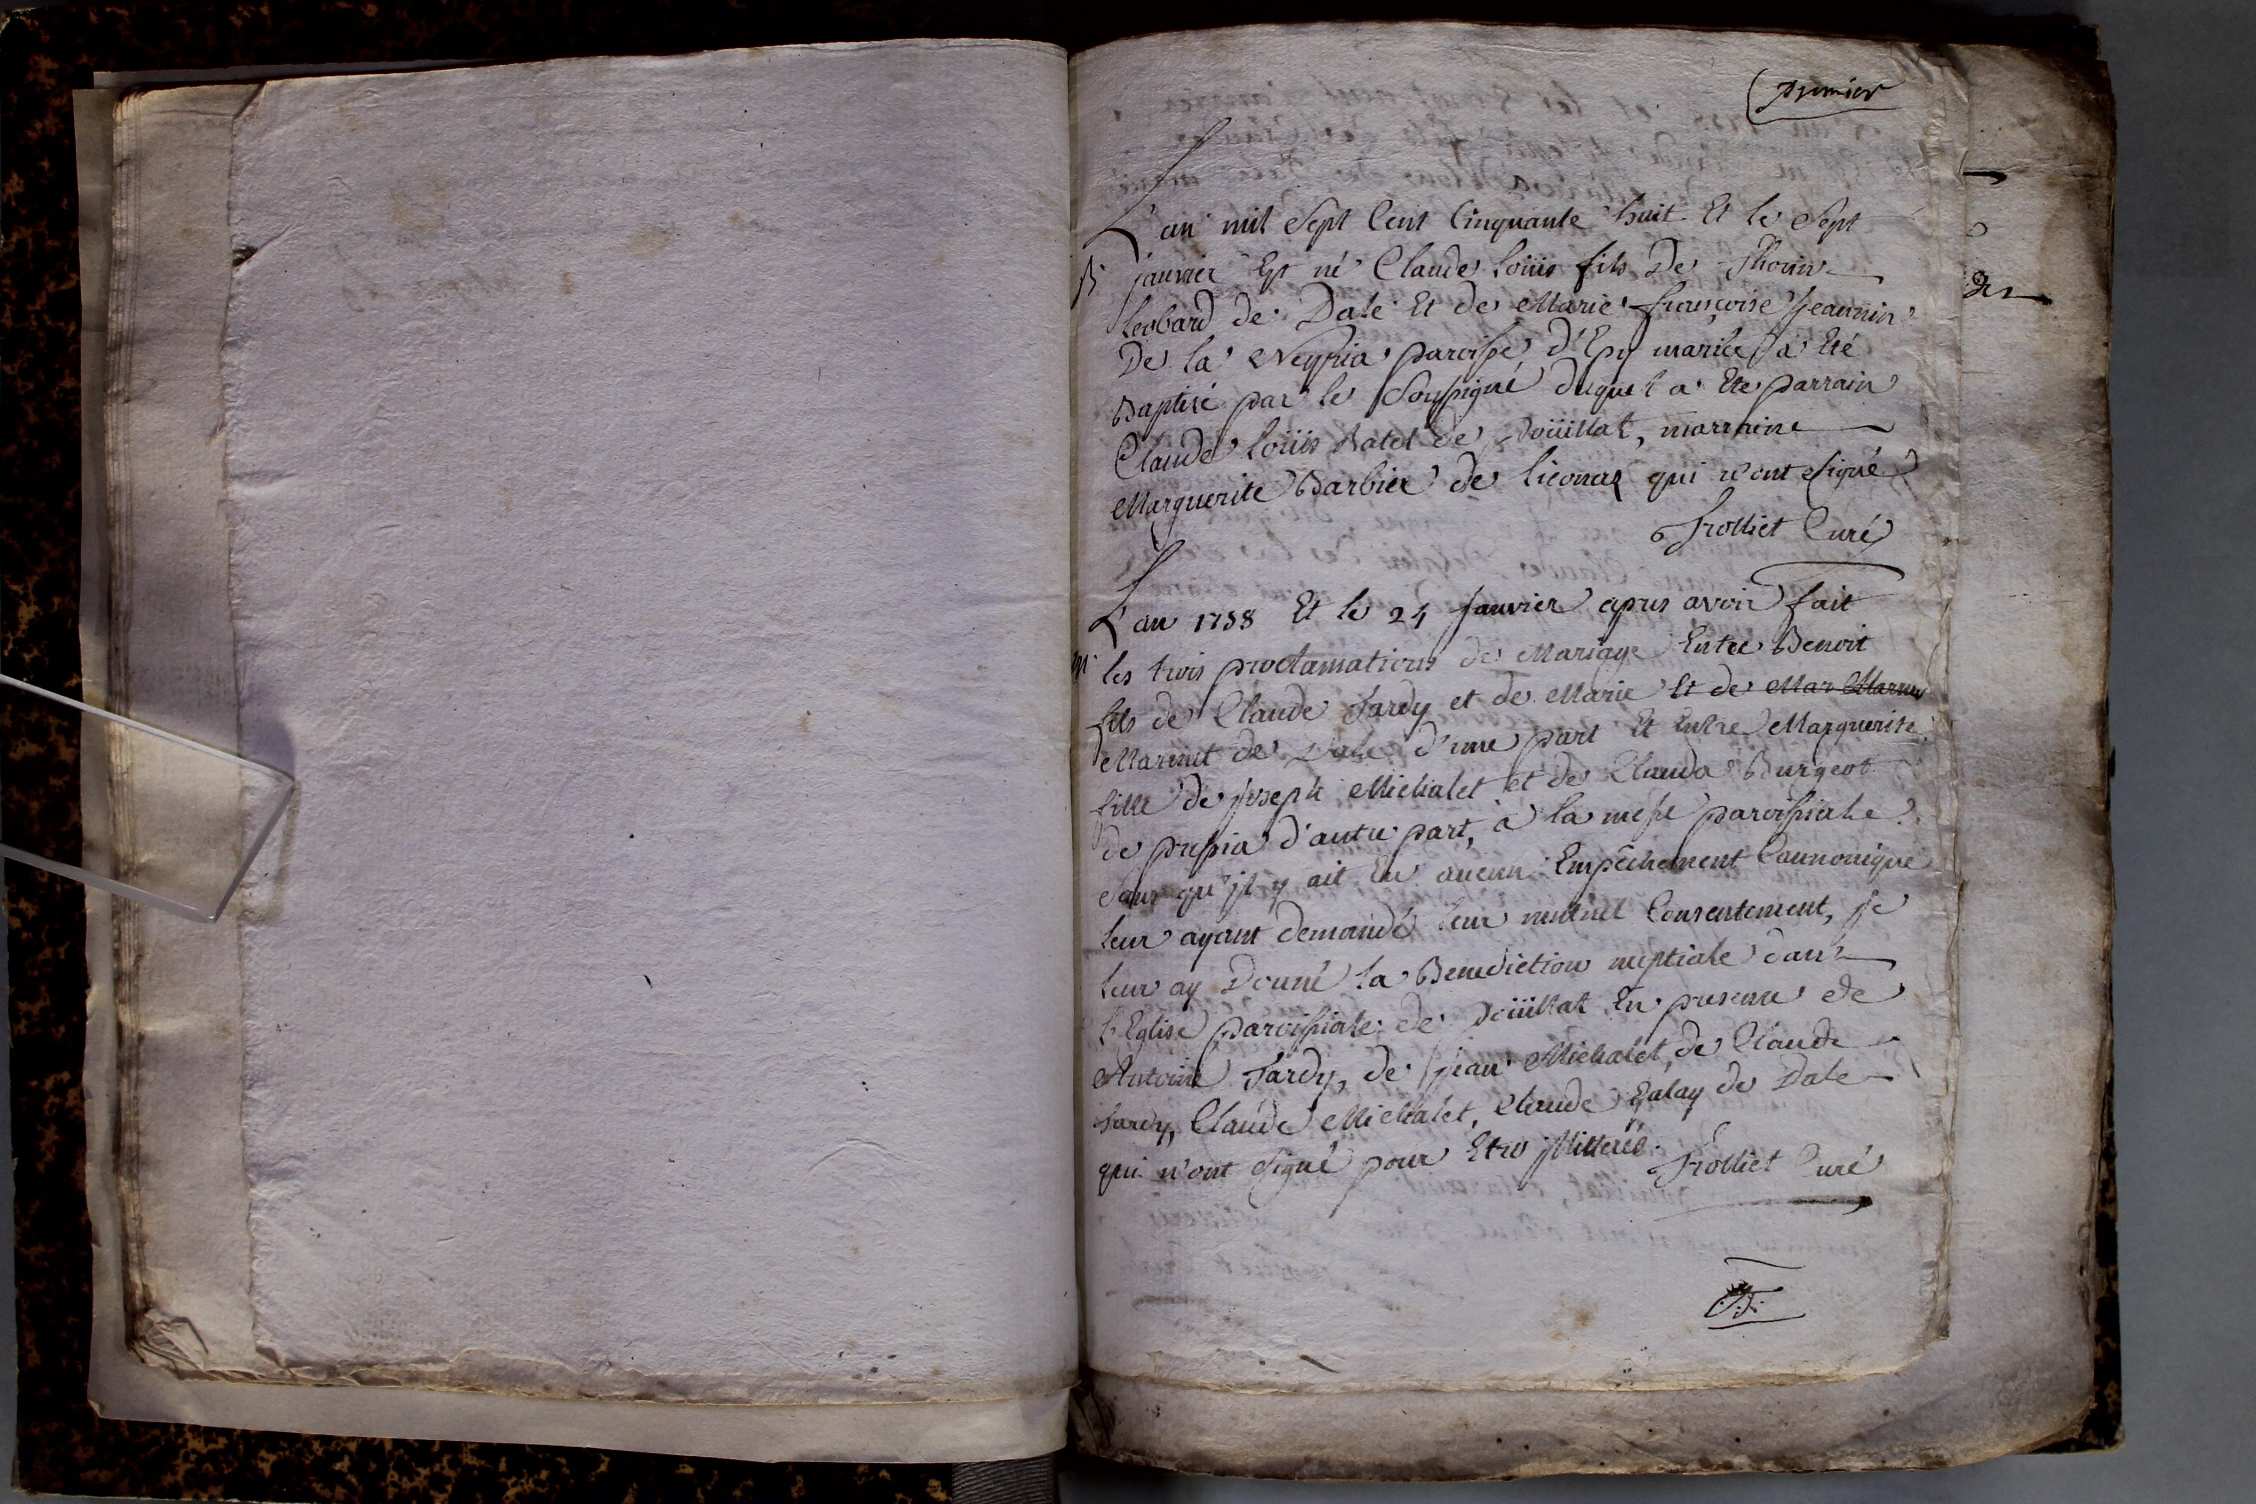 premier
L'an mil Sept Cent Cinquante huit Et le Sept
B. janvier Est né Claude loüis fils De Thonin
leobard de Dale Et de Marie françoise Jeannin
De la Neyria paroisse d'Epy mariés a Eté
Baptisé par le Soussigné duquel a Ete parrain
Claude loüis Natel de doüillat, marraine
Marguerite Barbier de liconnas qui n'ont signé
Frolliet Curé
L'an 1758 Et le 24 Janvier apres avoir fait
M. les trois proclamations de Mariage Entre Benoit
fils de Claude Tardy et de Marie Et de Mar
Marmet de Dale d'une part Et Entre Marguerite
fille de joseph Michalet et de Clauda Burgeot
de pressia d'autre part, à la messe paroissiale
Sans qu'jl y ait Eu aucun Empêchement Cannonique
leur ayant demandé leur mutuel Consentement, je
leur ay Donné la Benediction nuptiale dans
l'Eglise paroissiale de Doüillat En presence de
Antoine Tardy, de Jean Michalet, de Claude
Tardy, Claude Michalet, Claude Galay de Dale
qui n'ont signé pour Etre jllitterés. Frolliet Curé